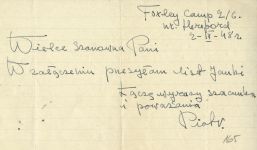 Foxley Camp 2/6.
nr. Hereford
2-II-48 r.
Wielce Szanowna Pani
W załączeniu przesyłam list Janki
Łączę wyrazy szacunku
i poważania
Piotr
165